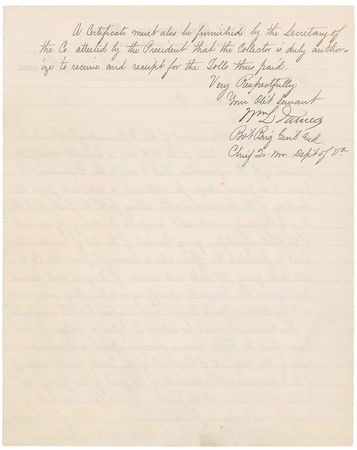 A Certificate must also be furnished by the Secretary of
the Co. attested by the President that the Collector is duly author-
ize to receive and receipt for the Tolls thus paid.
Very Respectfully
Your Obt Servant
Wm L James
Bvt Brig Gen'l and
Chief Qr. Mr. Dept of Va